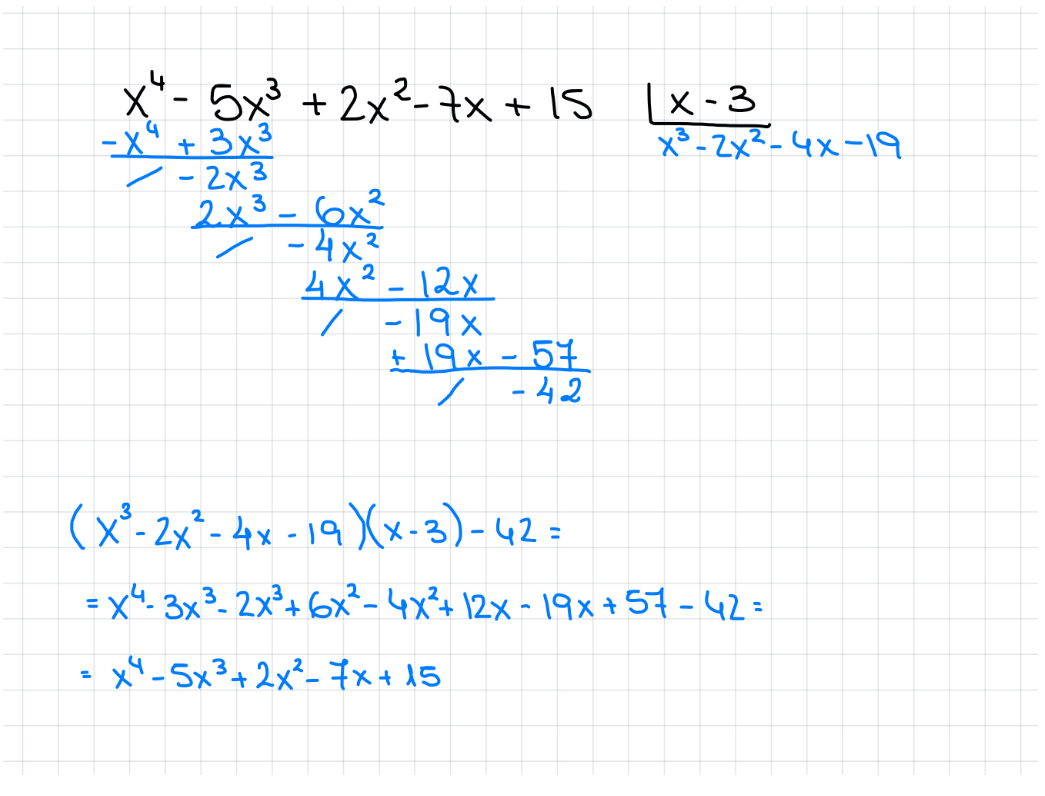 x⁴ - 5x³ + 2x² - 7x + 15 | x - 3
-x⁴ + 3x³ x³ - 2x² - 4x - 19
/ - 2x³
2x³ - 6x²
/ - 4x²
4x² - 12x
/ - 19x
+ 19x - 57
/ - 42
(x³ - 2x² - 4x - 19)(x - 3) - 42 =
= x⁴ - 3x³ - 2x³ + 6x² - 4x² + 12x - 19x + 57 - 42 =
= x⁴ - 5x³ + 2x² - 7x + 15